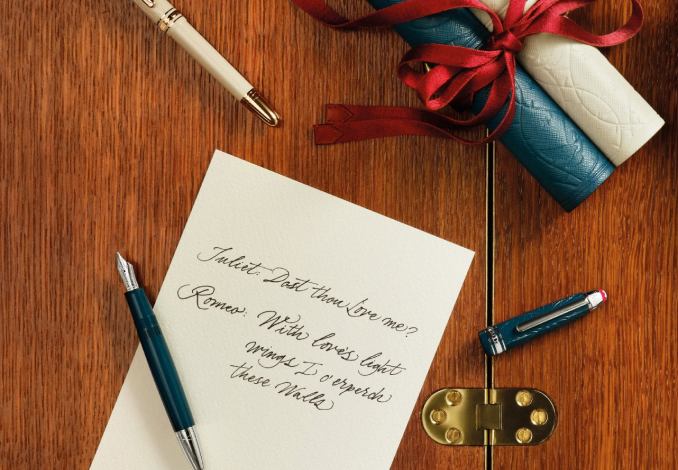 Juliet: Dost thou Love me?
Romeo: With love's light
wings I o'erperch
these Walls